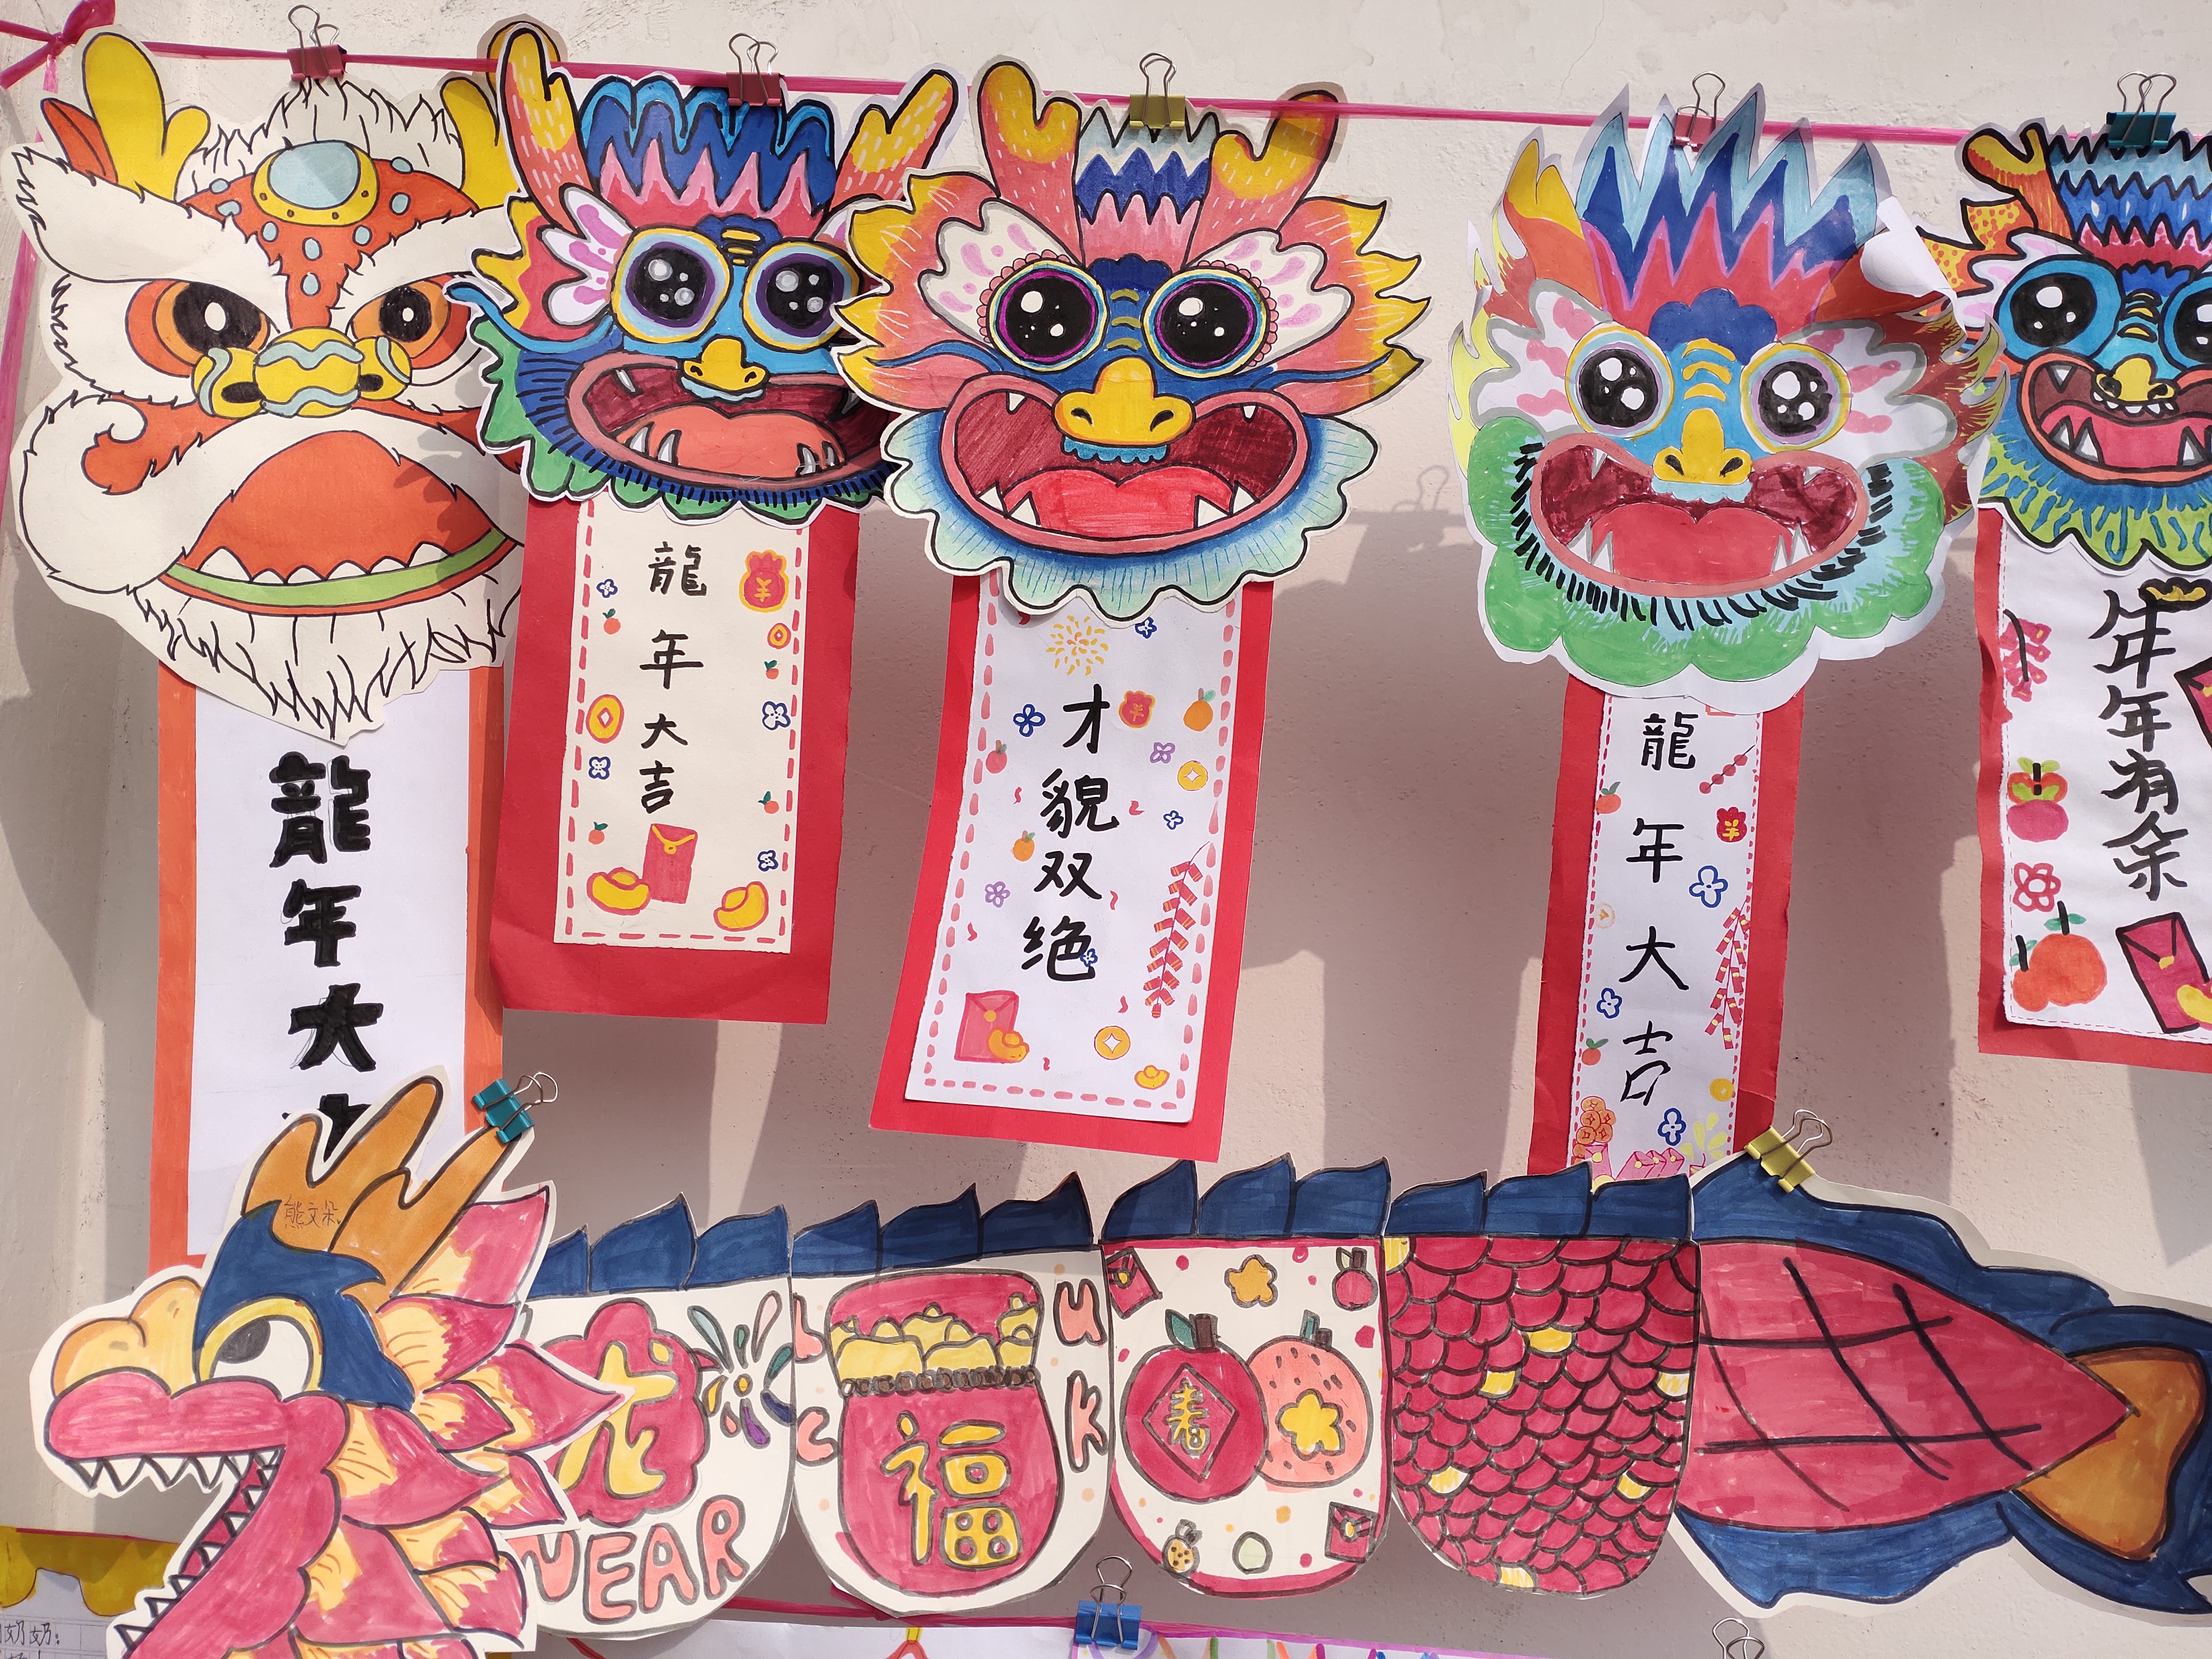 龍年大
龍年大吉
才貌双绝
龍年大吉
年年有余
熊文朵
龙
YEAR
L U
C K
福
春
奶奶: